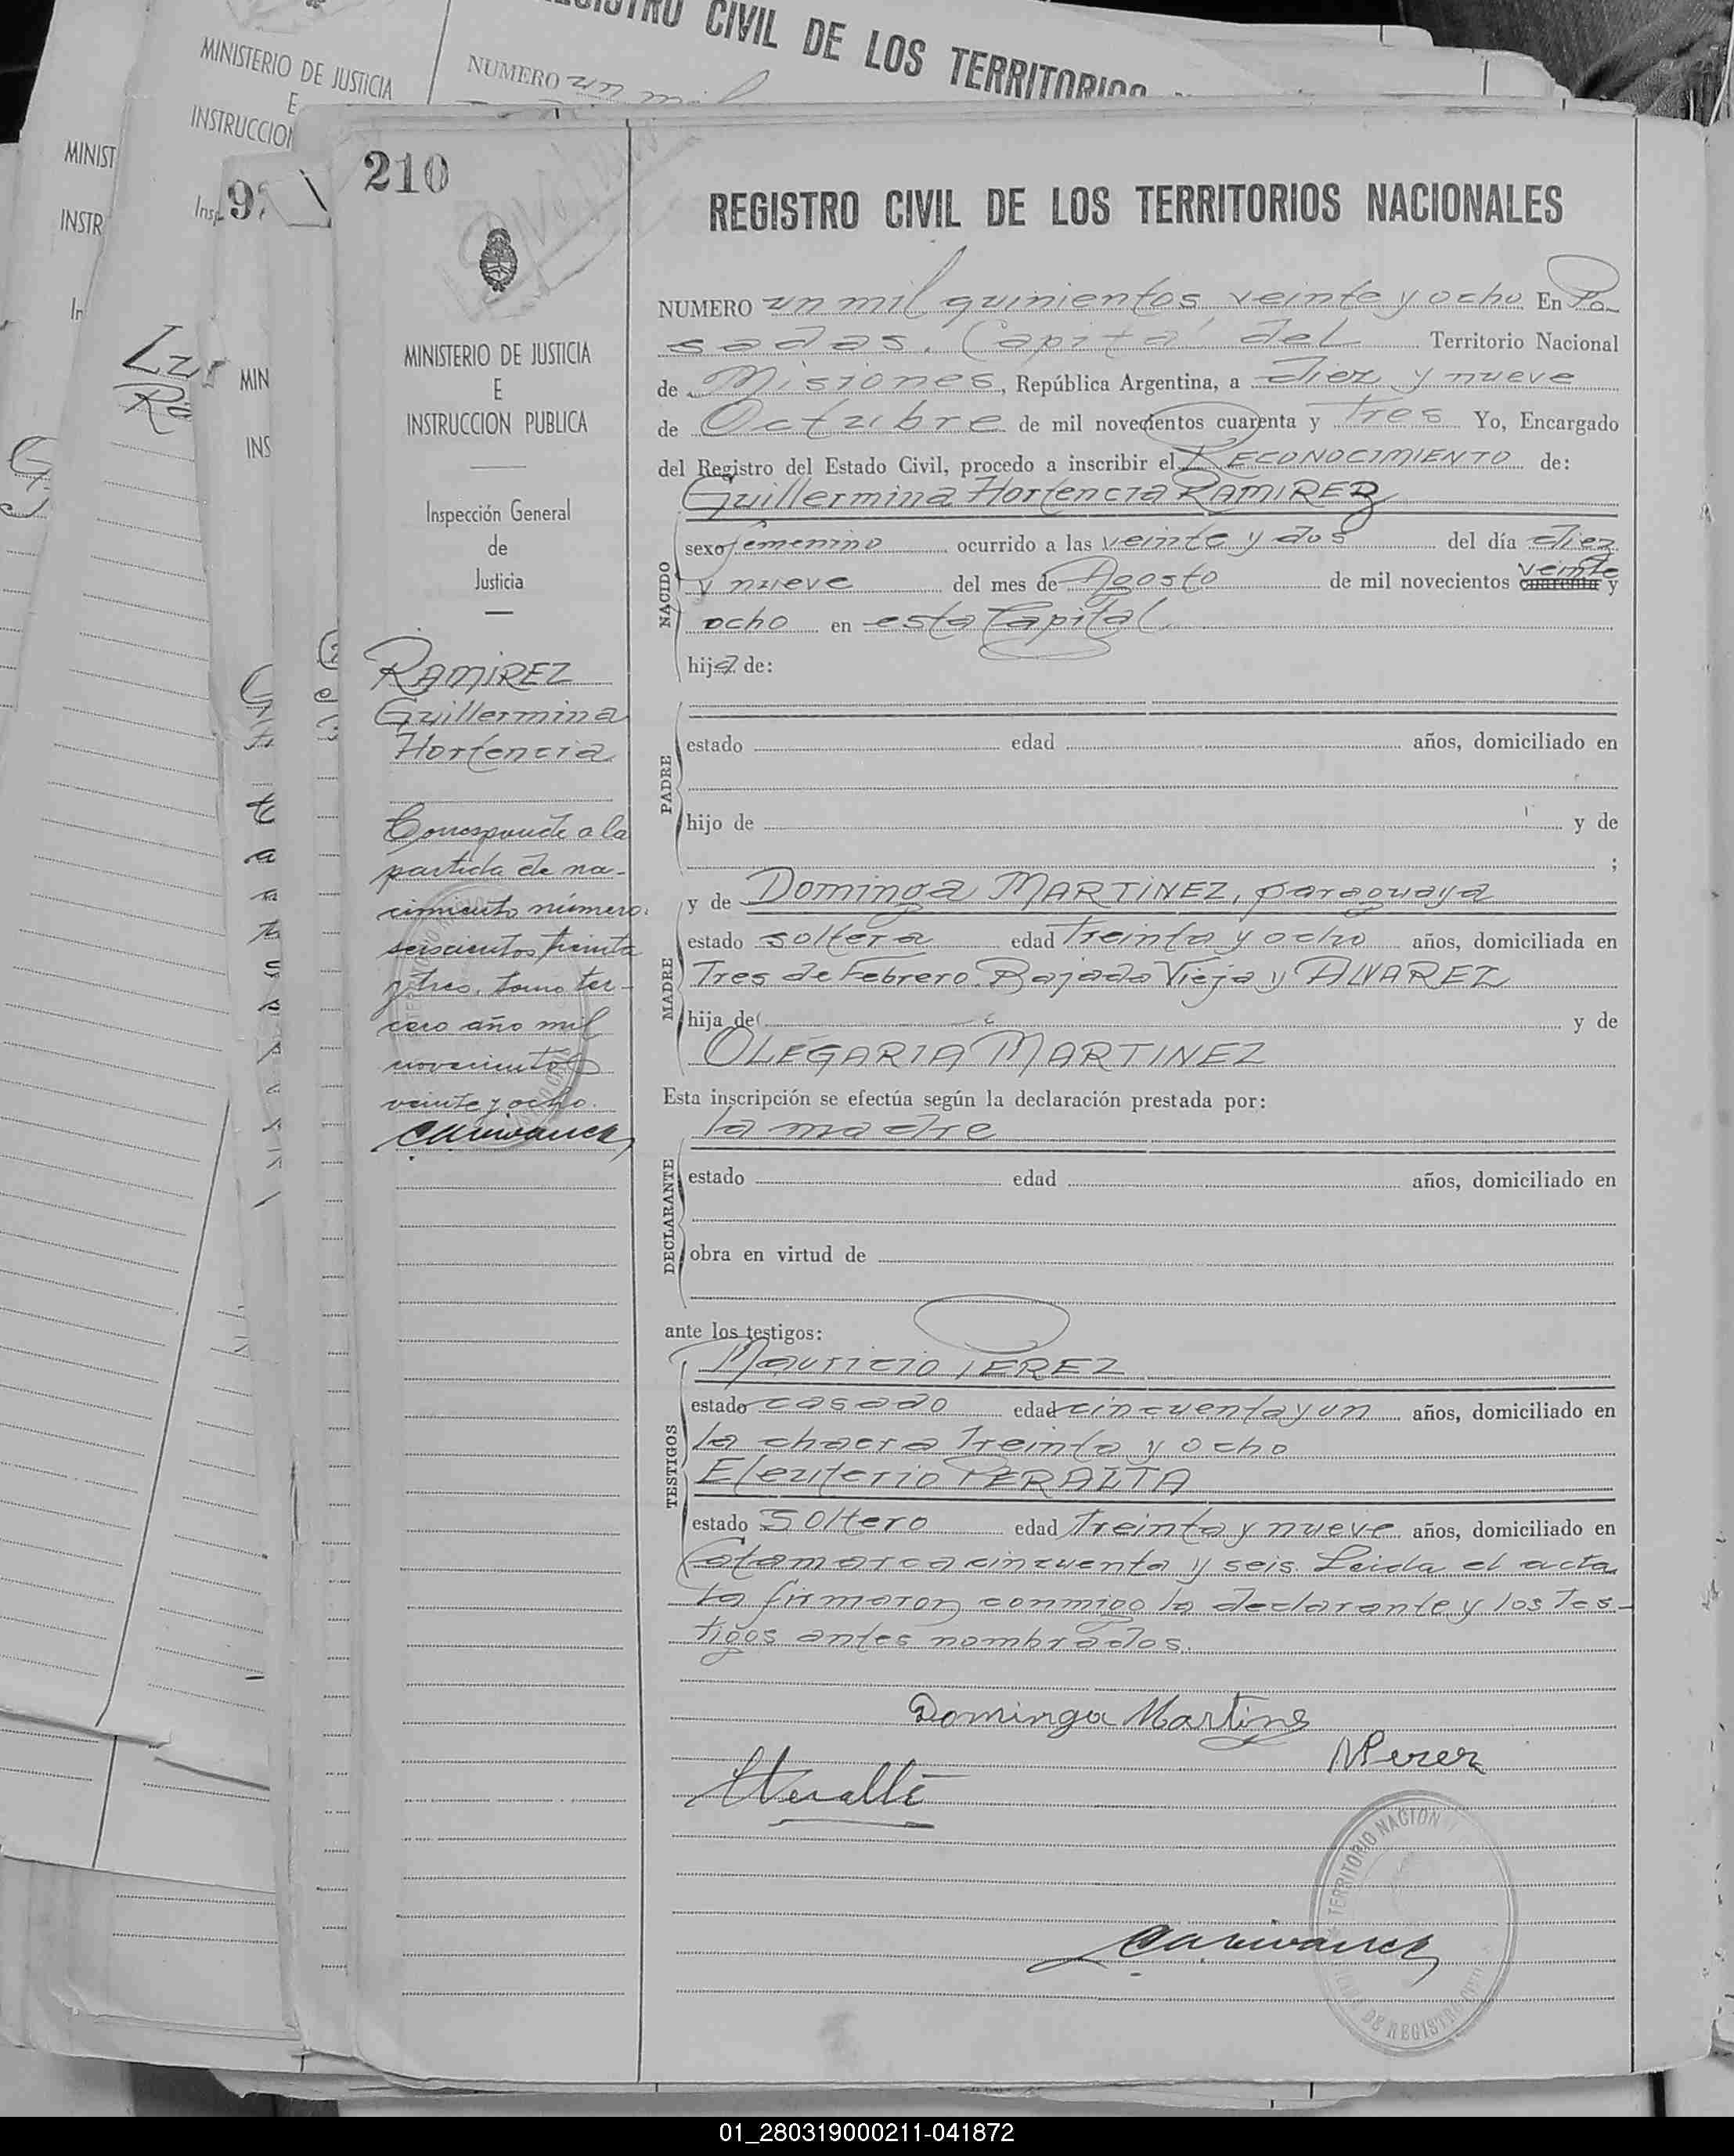 REGISTRO CIVIL DE LOS TERRITORIOS
MINISTERIO DE JUSTICIA
E
INSTRUCCION
NUMERO un mil
MINIST
INSTR
210
MINISTERIO DE JUSTICIA
E
INSTRUCCION PUBLICA
Inspección General
de
Justicia
RAMIREZ
Guillermina
Hortencia
Corresponde a la
partida de na-
cimiento número
seiscientos treinta
y tres, tomo ter-
cero año mil
novecientos
veinte y ocho.
REGISTRO CIVIL DE LOS TERRITORIOS NACIONALES
NUMERO un mil quinientos veinte y ocho En Po-
sadas, Capital del Territorio Nacional
de Misiones, República Argentina, a diez y nueve
de Octubre de mil novecientos cuarenta y tres Yo, Encargado
del Registro del Estado Civil, procedo a inscribir el RECONOCIMIENTO de:
Guillermina Hortencia RAMIREZ
NACIDO
sexo femenino ocurrido a las veinte y dos del día diez
y nueve del mes de Agosto de mil novecientos cuarenta veinte y
ocho en esta Capital
hija de:
PADRE
estado edad años, domiciliado en
hijo de y de
;
MADRE
y de Dominga MARTINEZ, paraguaya
estado soltera edad treinta y ocho años, domiciliada en
Tres de Febrero. Bajada Vieja y ALVAREZ
hija de y de
OLEGARIA MARTINEZ
Esta inscripción se efectúa según la declaración prestada por:
la madre
DECLARANTE
estado edad años, domiciliado en
obra en virtud de
ante los testigos:
TESTIGOS
Mauricio PEREZ
estado casado edad cincuenta y un años, domiciliado en
la chacra treinta y ocho
Eleuterio PERALTA
estado soltero edad treinta y nueve años, domiciliado en
Catamarca cincuenta y seis. Leida el acta
la firmaron conmigo la declarante y los tes-
tigos antes nombrados.
Dominga Martins
MPerez
TERRITORIO NACION
DE REGISTRO
01_280319000211-041872